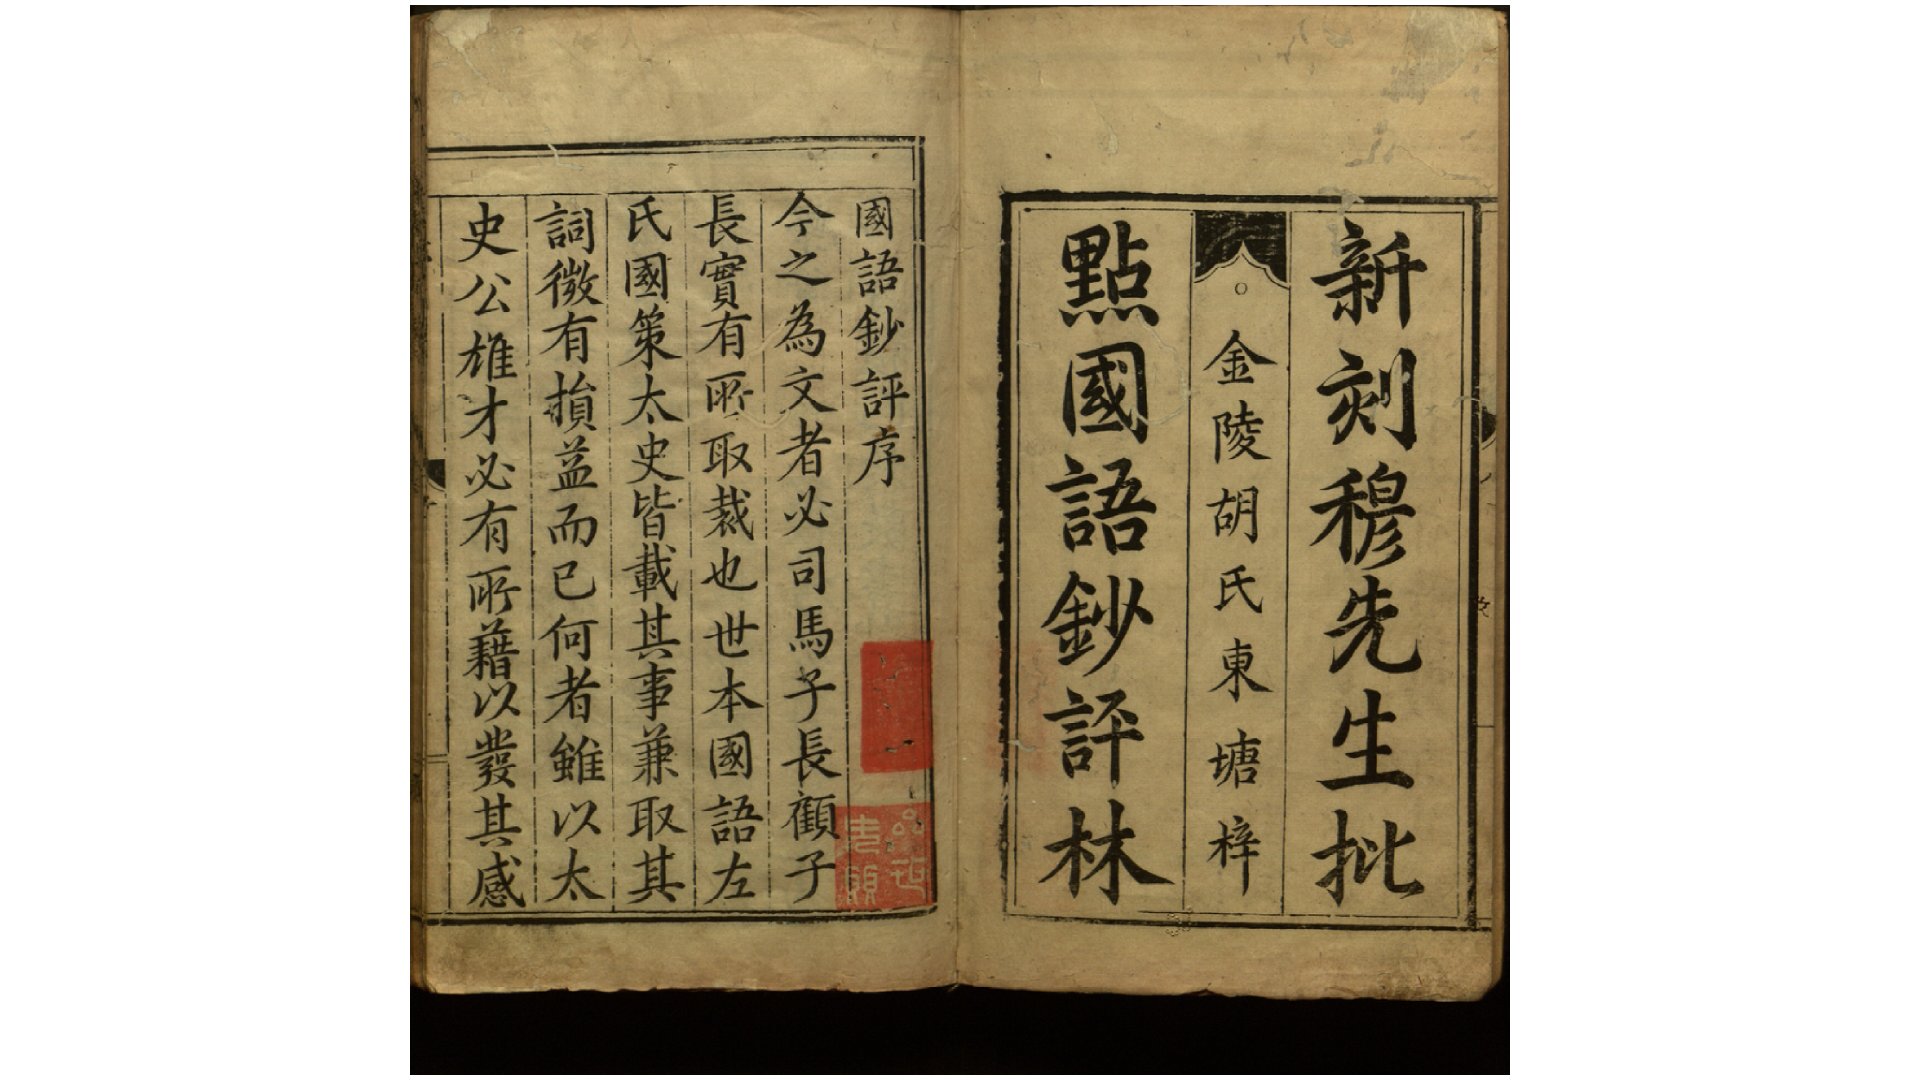 新刻穆先生批
金陵胡氏東塘梓
點國語鈔評林
國語鈔評序
今之為文者必司馬子長顧子
長實有所取裁也世本國語左
氏國策太史皆載其事兼取其
詞微有損益而已何者雖以太
史公雄才必有所藉以發其感